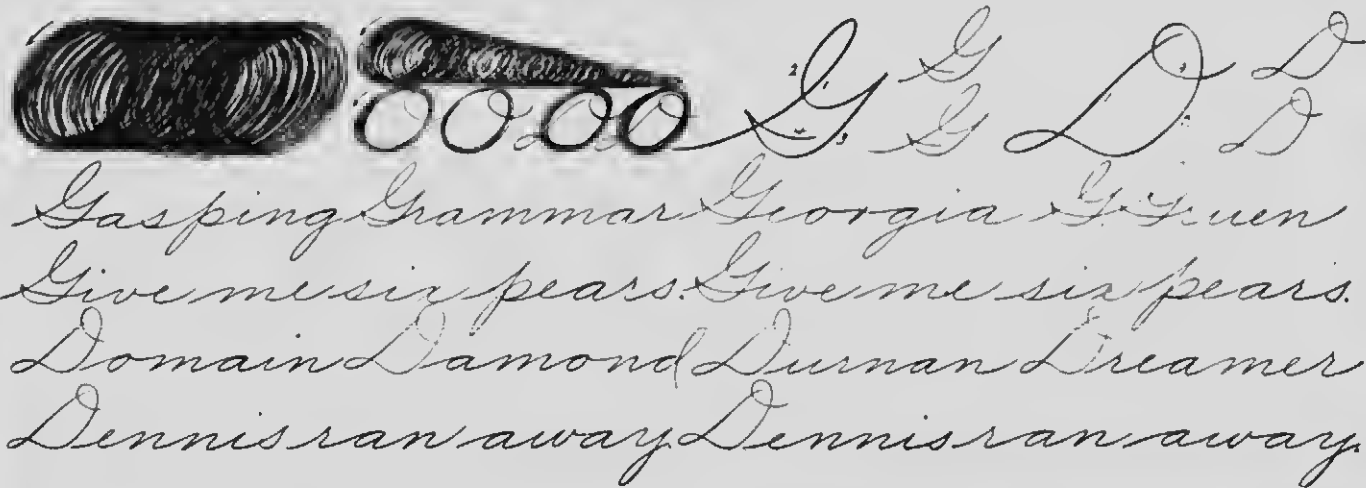 G G D D
G D
Gasping Grammar Georgia G. Gruen
Give me six pears. Give me six pears.
Domain Damond Durnan Dreamer
Dennis ran away. Dennis ran away.